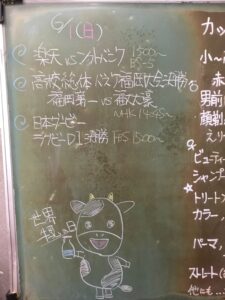 6/1(日)
楽天 vs ソフトバンク 1500〜
BS-5
高校総体 バスケ 福岡大会決勝
福岡第一 vs 福大大濠
NHK 14:45〜
日本ラグビー
D1 決勝 15:00〜
世界
牛乳の日
カッ
小〜
赤
男前
顔剃
えり
ビューティー
シャンプ
★トリートメ
カラー
パーマ
ストレート
他にも…